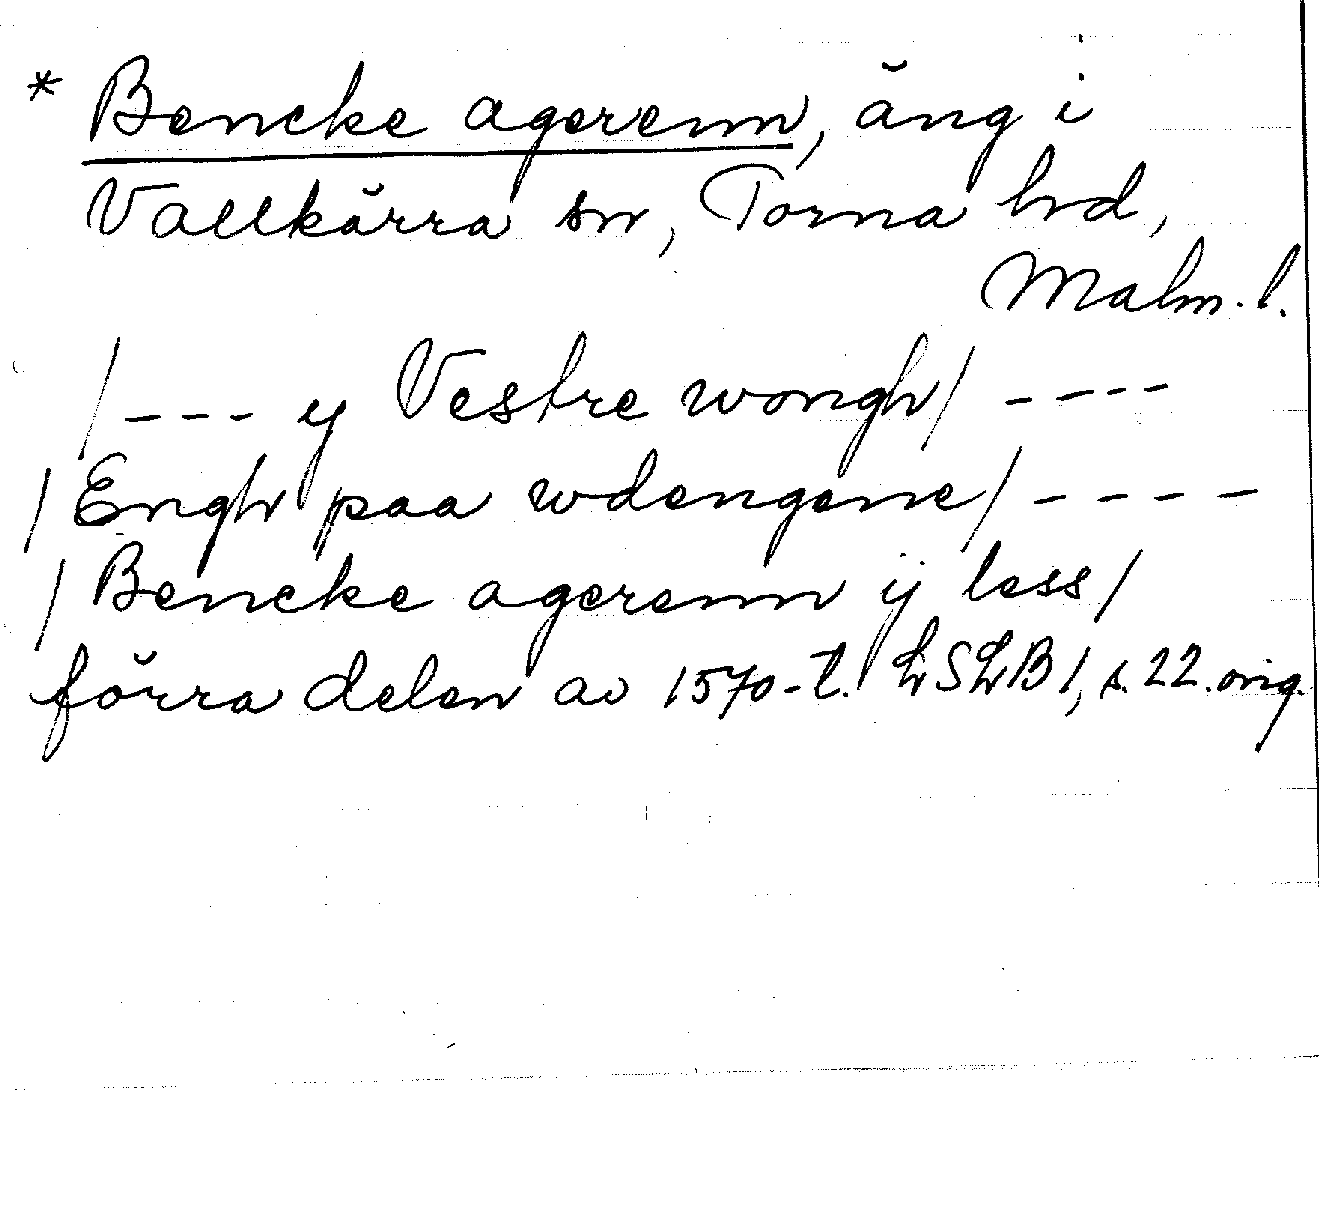 * Bencke agerenn, äng i
Vallkärra sn, Torna hrd,
Malm. l.
/--- y Vestre wongh/ ----
/Engh paa wdengene/ ----
/Bencke agerenn ij less/
förra delen av 1570-t. LSLB 1, s. 22. orig.